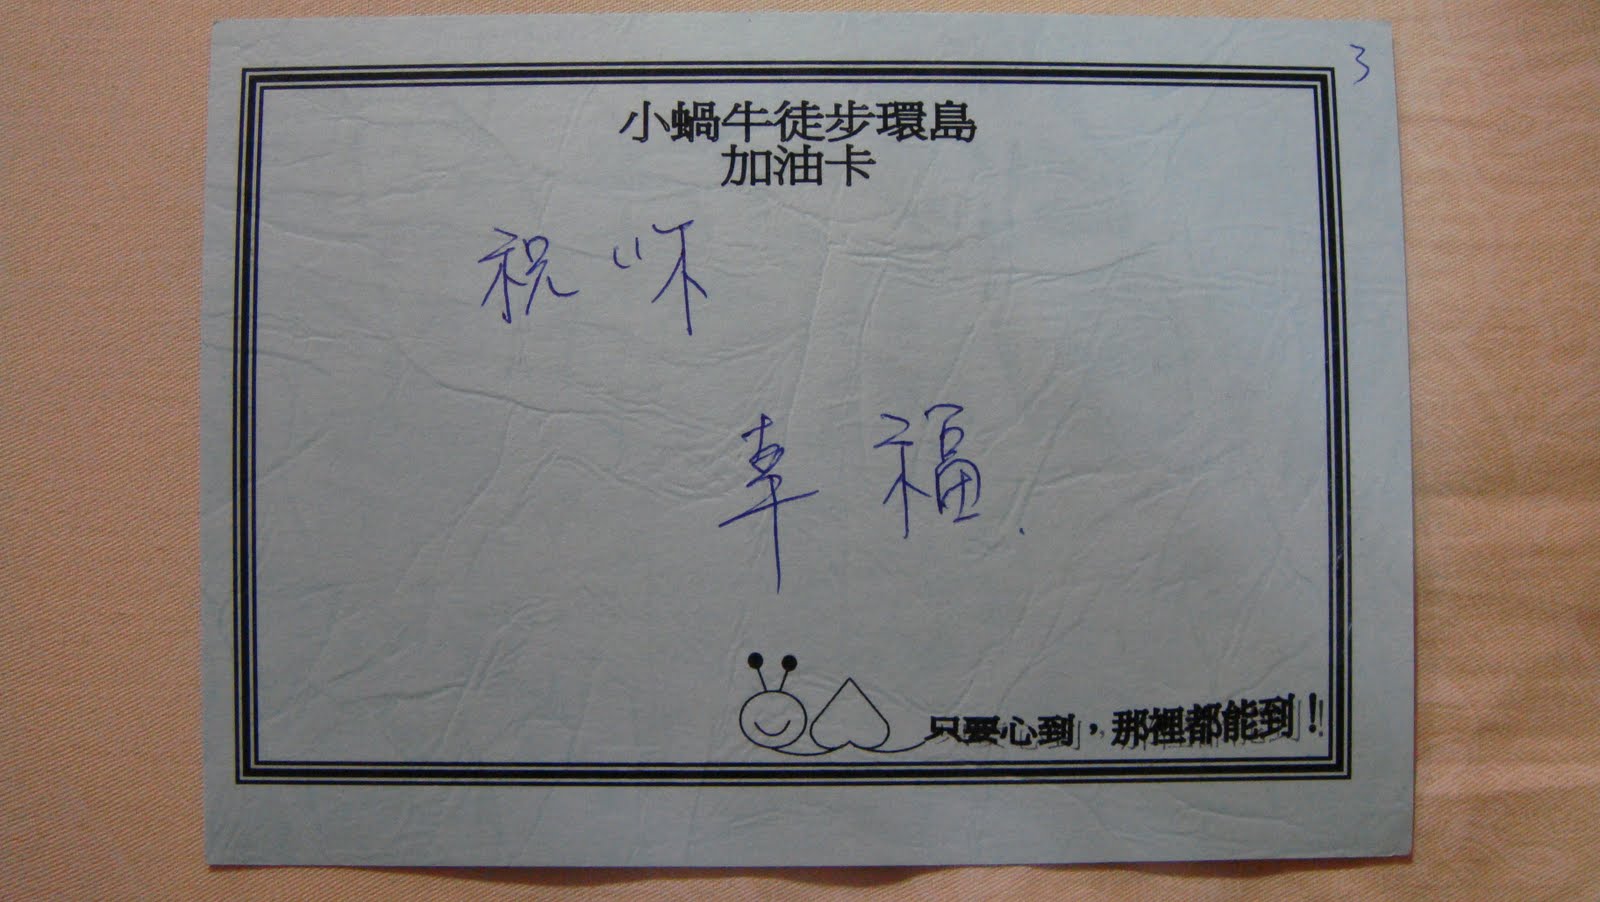 3
小蝸牛徒步環島
加油卡
祝你
幸福.
只要心到，那裡都能到！